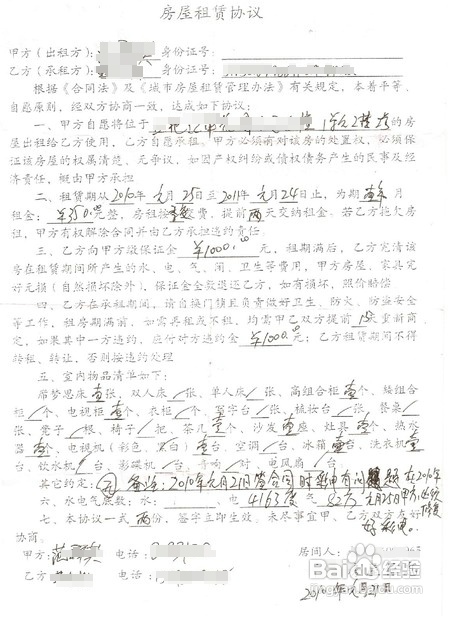 房屋租赁协议
甲方(出租方): 身份证号:
乙方(承租方): 身份证号:
根据《合同法》及《城市房屋租赁管理办法》有关规定,本着平等、
自愿原则,经双方协商一致,达成如下协议:
一、甲方自愿将位于 的房
屋出租给乙方使用,乙方自愿承租。甲方必须有对该房的处置权,必须保
证该房屋的权属清楚、无争议,如因产权纠纷或债权债务产生的民事及经
济责任,概由甲方承担
二、租赁期从2010年元月25日至2011年元月24日止,为期壹年月
租金:¥350.00元整,房租按季度缴费,提前两天交纳租金。若乙方拖欠房
租,甲方有权解除合同并由乙方承担违约责任。
三、乙方向甲方缴保证金 ¥1000.00 元,租期满后,乙方完清该
房在租赁期间所产生的水、电、气、闭、卫生等费用,甲方房屋、家具完
好无损(自然损坏除外),保证金全数退还乙方,如有损坏,照价赔偿
四、乙方在承租期间,请自换门锁且负责做好卫生、防火、防盗安全
等工作,租房期满前,如需续租或不租,均需甲乙双方提前15天重新商
定,如果其中一方违约,应付对方违约金 ¥1000.00元;乙方租赁期间不得
转租,转让,否则按违约处理
五、室内物品清单如下:
席梦思床壹张,双人床/张、单人床/张、高组合柜壹个、矮组合
柜/个、电视柜壹个、衣柜/个、写字台/张、梳妆台/张、餐桌/
张、凳子/根、椅子/把、茶几/个、沙发壹座、灶具壹个、热水
器壹个、电视机(彩色、黑白)壹台、空调/台、冰箱壹台、洗衣机壹
台、饮水机/台、影碟机/台、音响/对、电风扇/台
其它约定: 备注:2010年元月21日签合同时 电有问题 在2010年
元月25日甲方必须修复好 电。
六、水电气底数:水: 电4163度 气
七、本协议一式两份,签字即生效,未尽事宜甲、乙双方友好
协商。
甲方: 电话: 居间人:
乙方: 电话:
2010年元月21日
Baidu百科经验